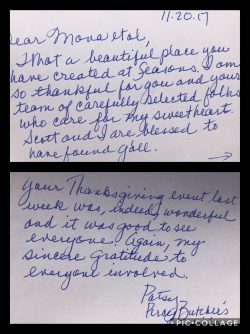 11.20.17
Dear Mona et al,
What a beautiful place you
have created at Seasons. I am
so thankful for you and your
team of carefully selected folks
who care for my sweetheart.
Scott and I are blessed to
have found y'all.
Your Thanksgiving event last
week was, indeed, wonderful
and it was good to see
everyone. Again, my
sincere gratitude to
everyone involved.
Patsy
Butchie's
PIC•COLLAGE